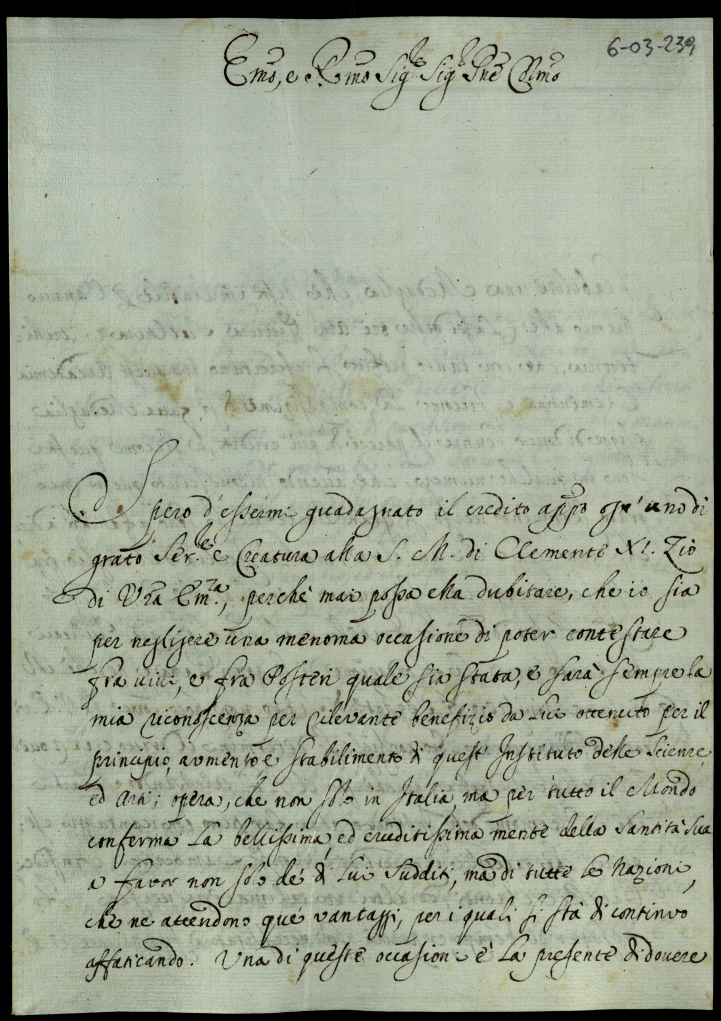 6-03-239
Emo, e Rmo Sigre Sigre Pne Colmo
Spero d'essermi guadagnato il credito appo ogn'uno di
grato Serre e Creatura alla S. M. di Clemente XI. Zio
di Vra Emza, perche mai possa ella dubitare, che io sia
per negligere una menoma occasione di poter contestare
fra vivi, e fra Posteri quale sia stata, e sarà sempre la
mia riconoscenza per rilevante benefizio da Lui ottenuto per il
principio, aumento e stabilimento di quest' Instituto delle Scienze,
ed Arti; opera, che non solo in Italia, ma per tutto il Mondo
conferma la bellissima, ed eruditissima mente della Santità Sua
a favor non solo de' di Lui Sudditi, ma di tutte le Nazioni,
che ne attendono que' vantaggi, per i quali si stà di continuo
affaticando. Una di queste occasioni è la presente di dovere